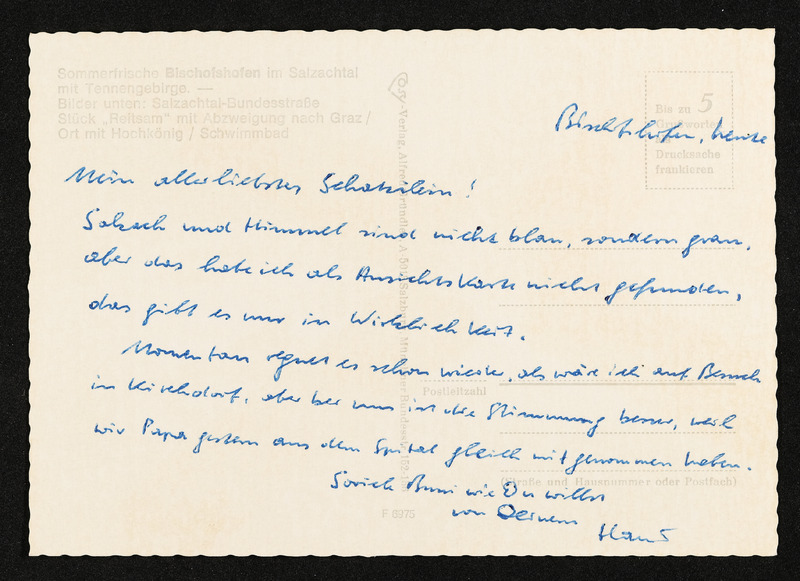 Sommerfrische Bischofshofen im Salzachtal
mit Tennengebirge. —
Bilder unten: Salzachtal-Bundesstraße
Stück „Reitsam" mit Abzweigung nach Graz /
Ort mit Hochkönig / Schwimmbad
Bis zu 5
Grußworte
Drucksache
frankieren
Bischofshofen, heute
Mein allerliebstes Schatzilein!
Salzach und Himmel sind nicht blau, sondern grau,
aber das habe ich als Ansichtskarte nicht gefunden,
das gibt es nur in Wirklichkeit.
Momentan regnet es schon wieder, als wäre ich auf Besuch
in Kirchdorf, aber bei uns ist die Stimmung besser, weil
wir Papa gestern aus dem Spital gleich mitgenommen haben.
Soviele Bussi wie Du willst
von Deinem
Hans
Postleitzahl
(Straße und Hausnummer oder Postfach)
F 6975